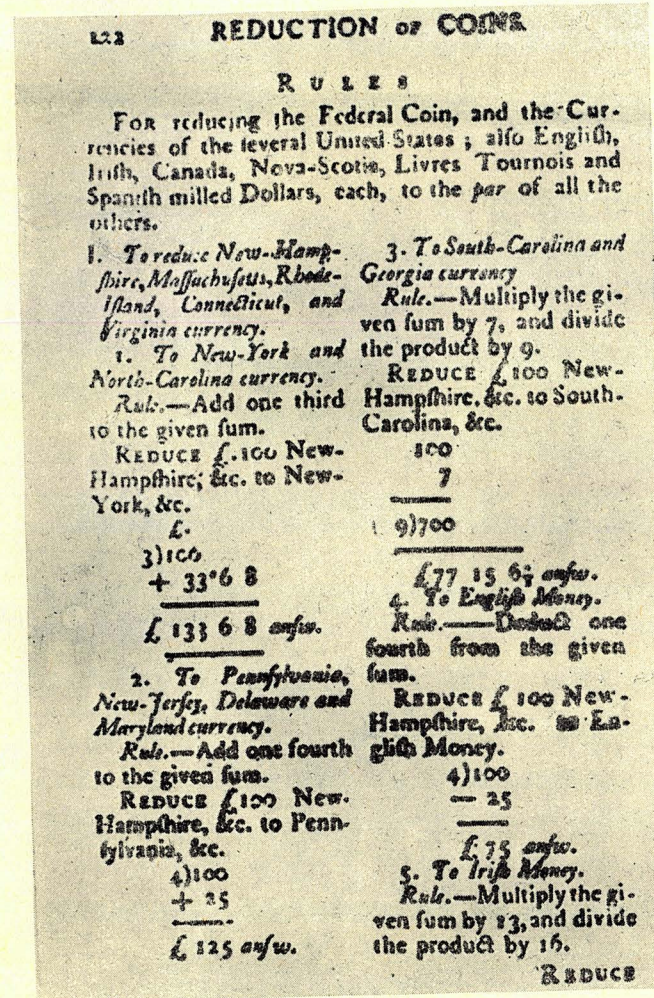 122 REDUCTION OF COINS.
RULES
FOR reducing the Federal Coin, and the Cur-
rencies of the ſeveral United States ; alſo Engliſh,
Iriſh, Canada, Nova-Scotia, Livres Tournois and
Spaniſh milled Dollars, each, to the par of all the
others.
1. To reduce New-Hamp-
ſhire, Maſſachuſetts, Rhode-
Iſland, Connecticut, and
Virginia currency.
1. To New-York and
North-Carolina currency.
Rule.—Add one third
to the given ſum.
REDUCE £.100 New-
Hampſhire, &c. to New-
York, &c.
£.
3)100
+ 33 6 8
£ 133 6 8 anſw.
2. To Pennſylvania,
New-Jerſey, Delaware and
Maryland currency.
Rule.—Add one fourth
to the given ſum.
REDUCE £100 New-
Hampſhire, &c. to Penn-
ſylvania, &c.
4)100
+ 25
£ 125 anſw.
3. To South-Carolina and
Georgia currency
Rule.—Multiply the gi-
ven ſum by 7, and divide
the product by 9.
REDUCE £100 New-
Hampſhire, &c. to South-
Carolina, &c.
100
7
9)700
£77 15 6⅔ anſw.
4. To Engliſh Money.
Rule.—Deduct one
fourth from the given
ſum.
REDUCE £ 100 New-
Hampſhire, &c. to En-
gliſh Money.
4)100
— 25
£ 75 anſw.
5. To Iriſh Money.
Rule.—Multiply the gi-
ven ſum by 13, and divide
the product by 16.
REDUCE